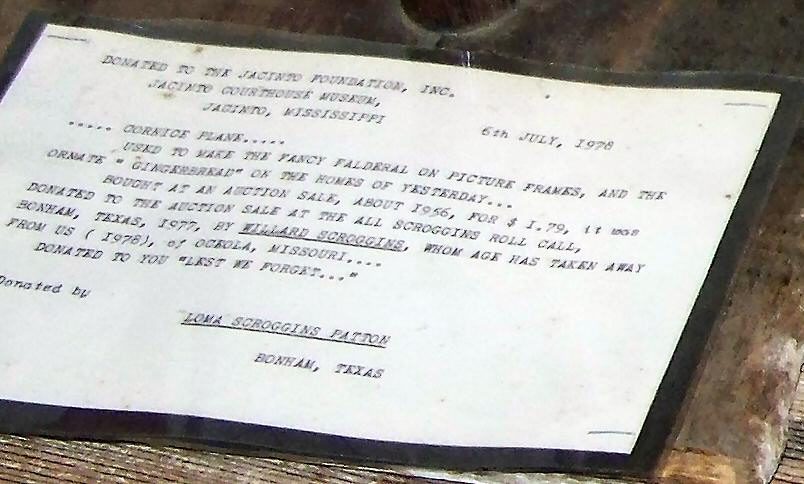 DONATED TO THE JACINTO FOUNDATION, INC.
JACINTO COURTHOUSE MUSEUM,
JACINTO, MISSISSIPPI
6th JULY, 1978
..... CORNICE PLANE.....
USED TO MAKE THE FANCY FALDERAL ON PICTURE FRAMES, AND THE
ORNATE " GINGERBREAD" ON THE HOMES OF YESTERDAY...
BOUGHT AT AN AUCTION SALE, ABOUT 1956, FOR $ 1.79, it was
DONATED TO THE AUCTION SALE AT THE ALL SCROGGINS ROLL CALL,
BONHAM, TEXAS, 1977, BY WILLARD SCROGGINS, WHOM AGE HAS TAKEN AWAY
FROM US ( 1978), of OCEOLA, MISSOURI....
DONATED TO YOU "LEST WE FORGET..."
Donated by
LOMA SCROGGINS PATTON
BONHAM, TEXAS